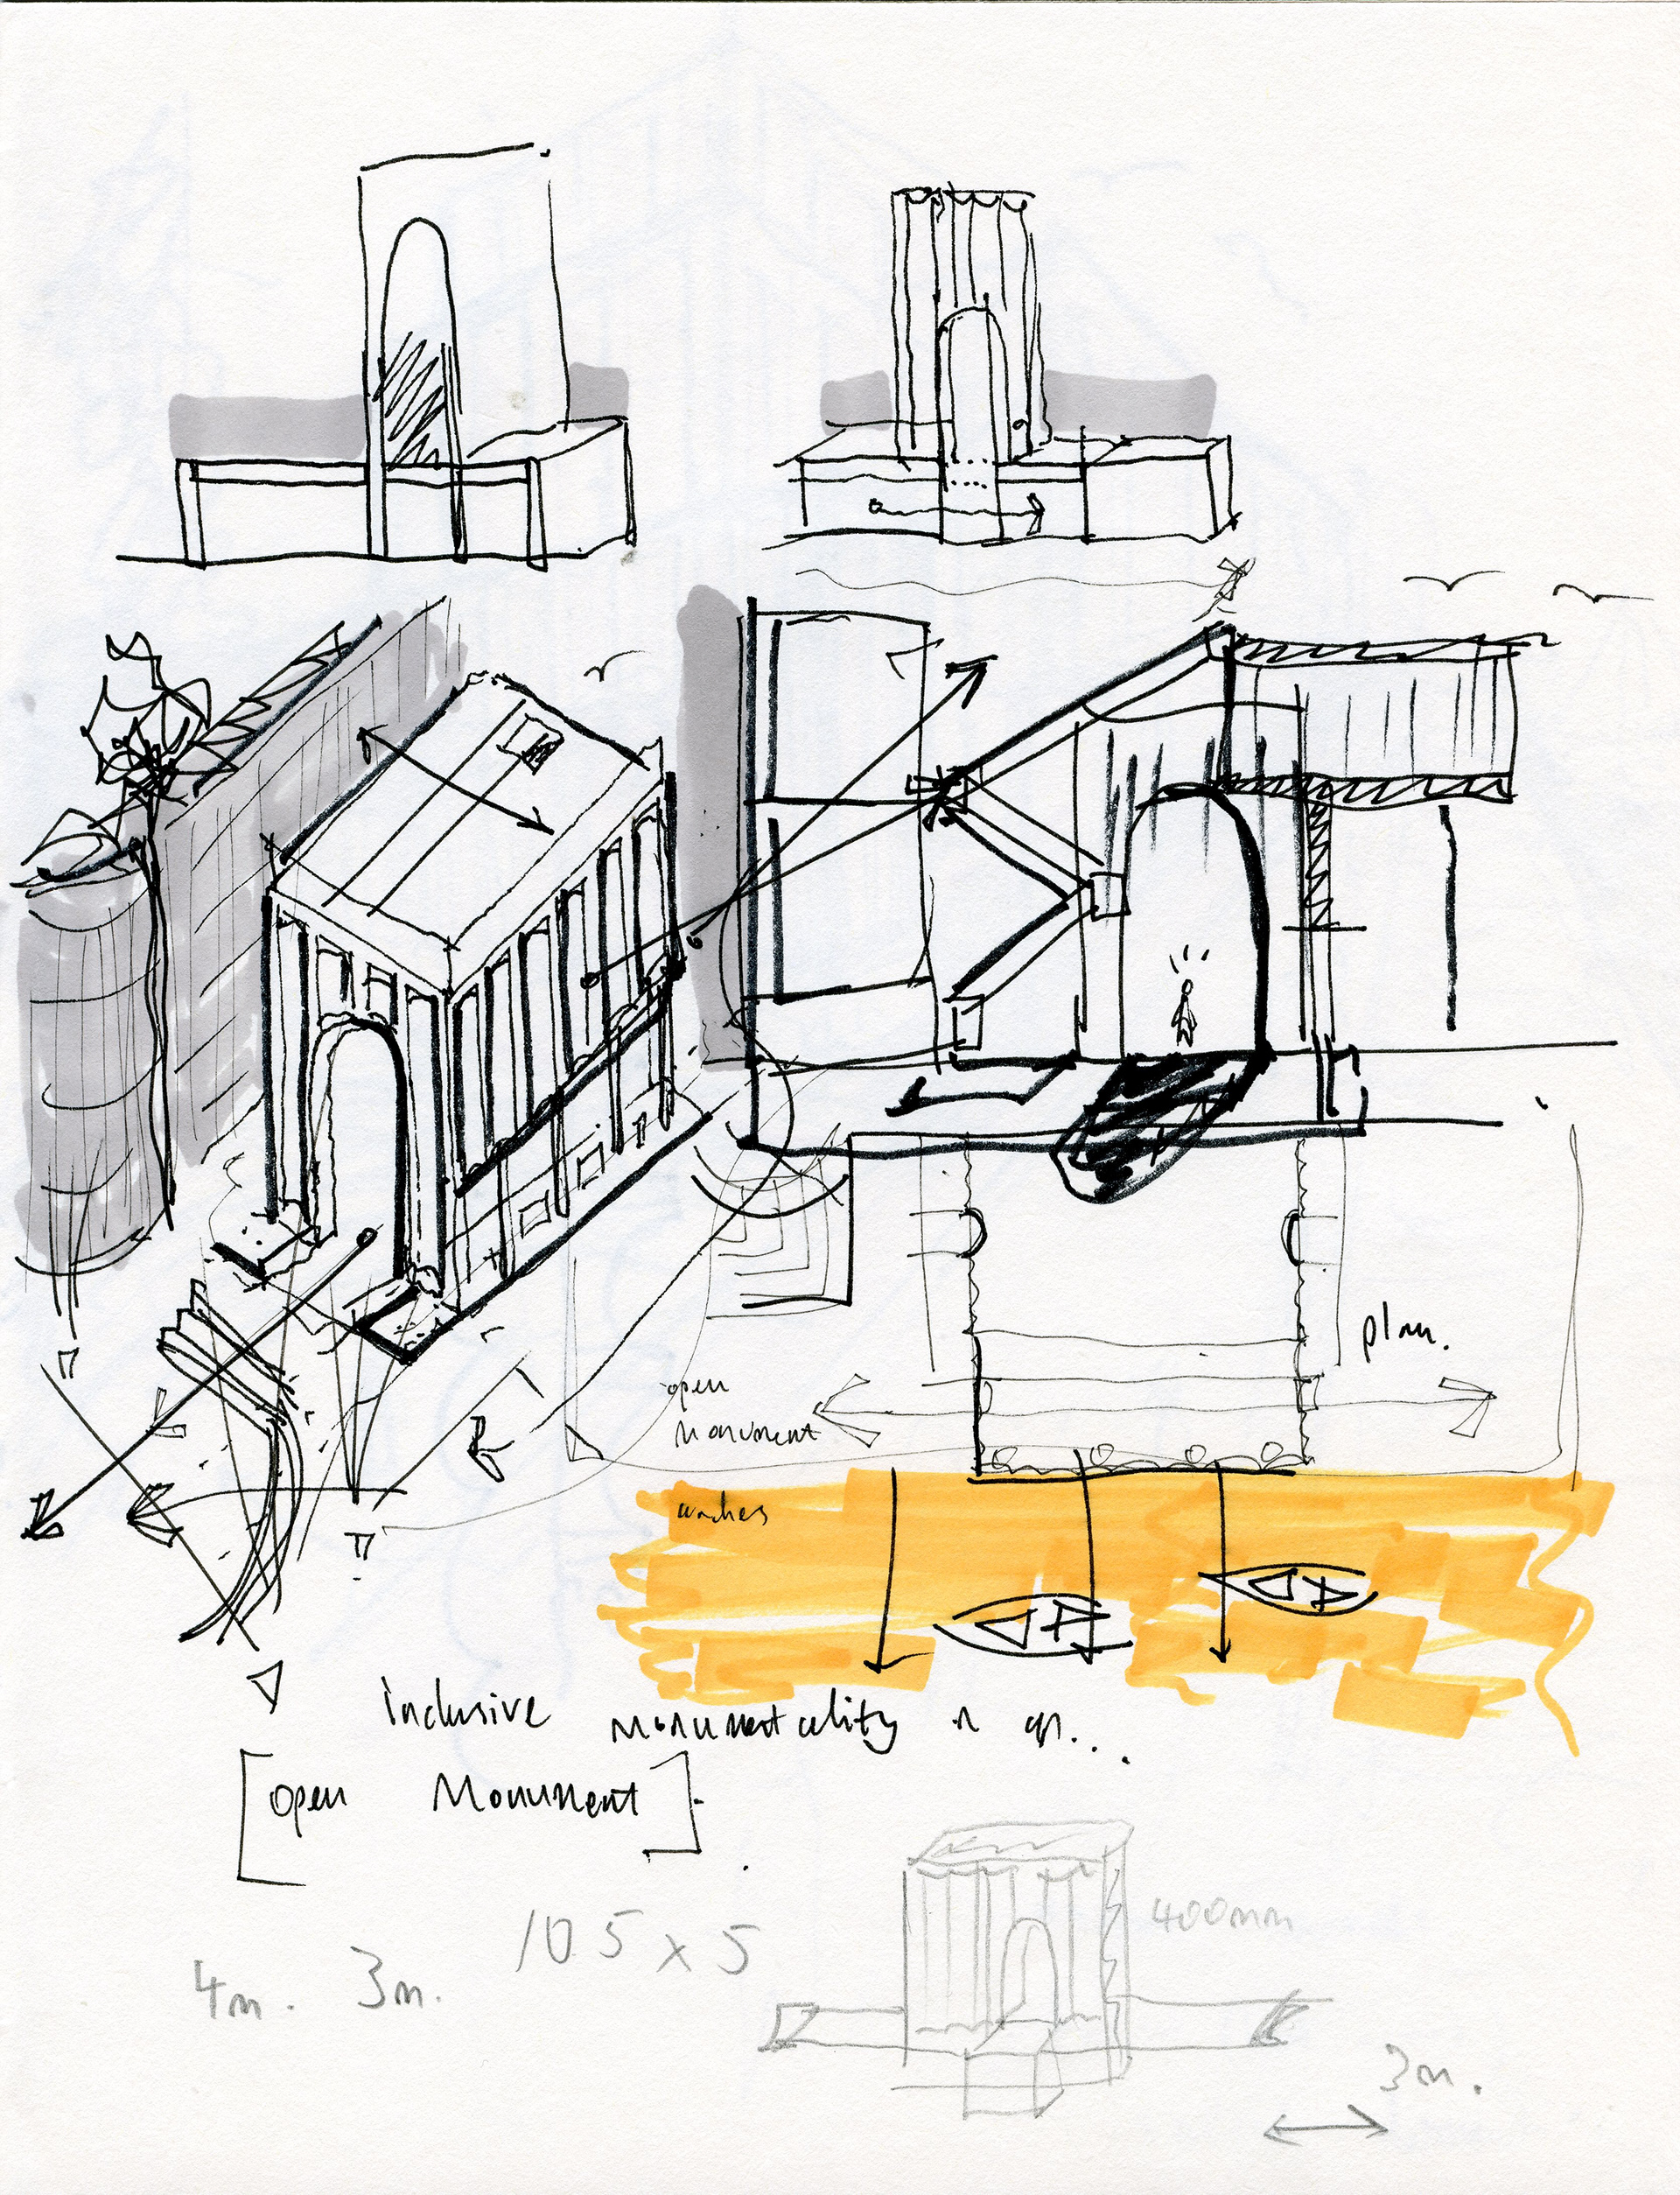 plan.
open
Monument
Inclusive monumentality
[open Monument].
10 5 x 5
400mm
4m. 3m.
3m.